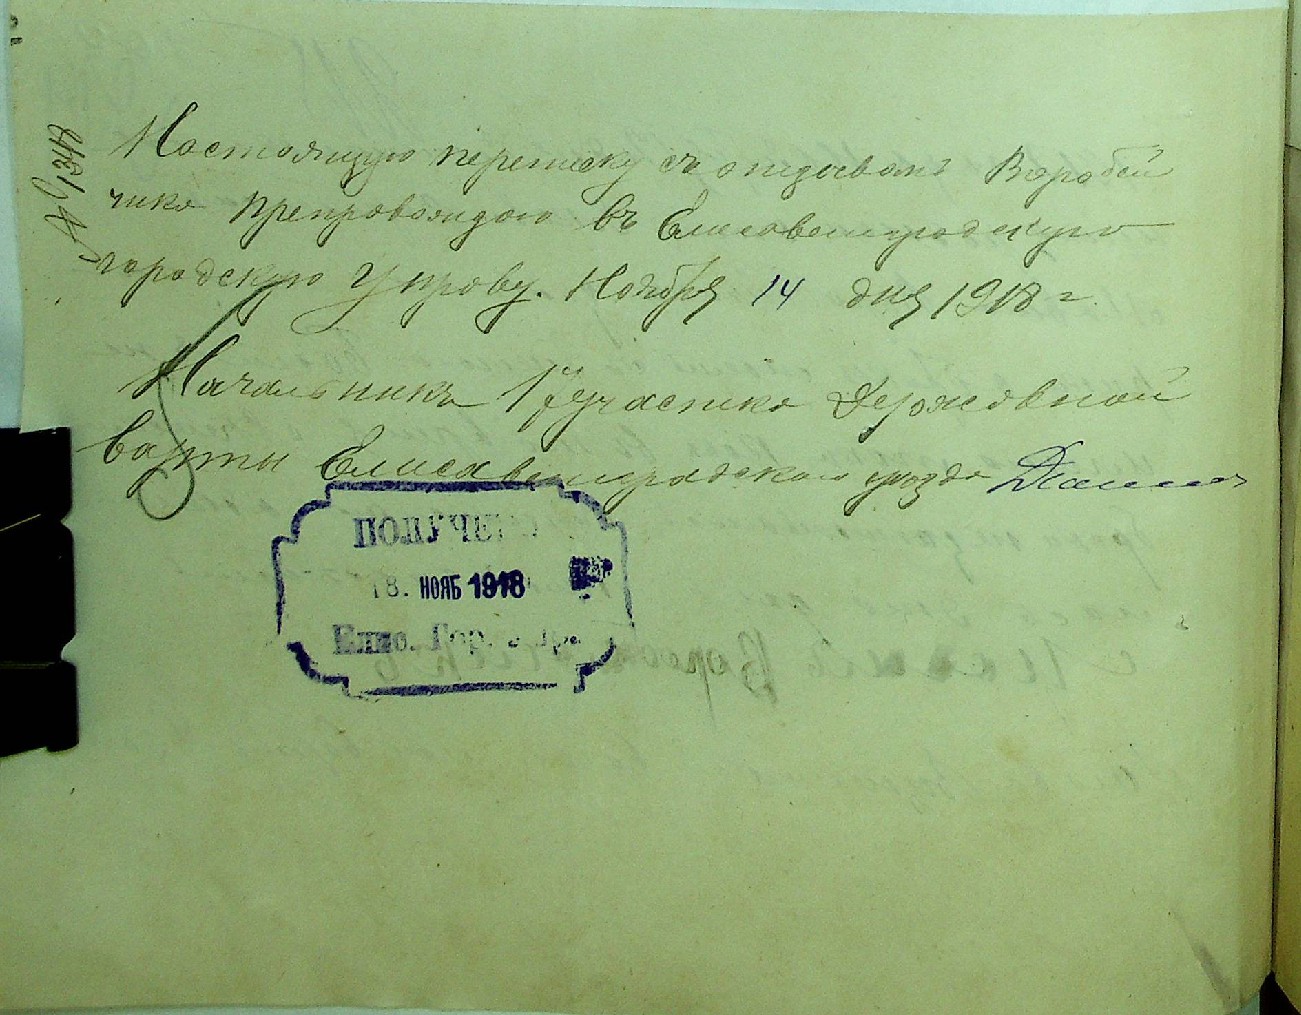 № 1348
Настоящую переписку съ отзывомъ Воробей
чика препровождаю въ Елисаветградскую
городскую Управу. Ноября 14 дня 1918 г.
Начальникъ 1 участка Державной
Варты Елисаветградскаго уѣзда
ПОЛУЧЕНО
18. НОЯБ 1918
Елис. Гор. Упр.